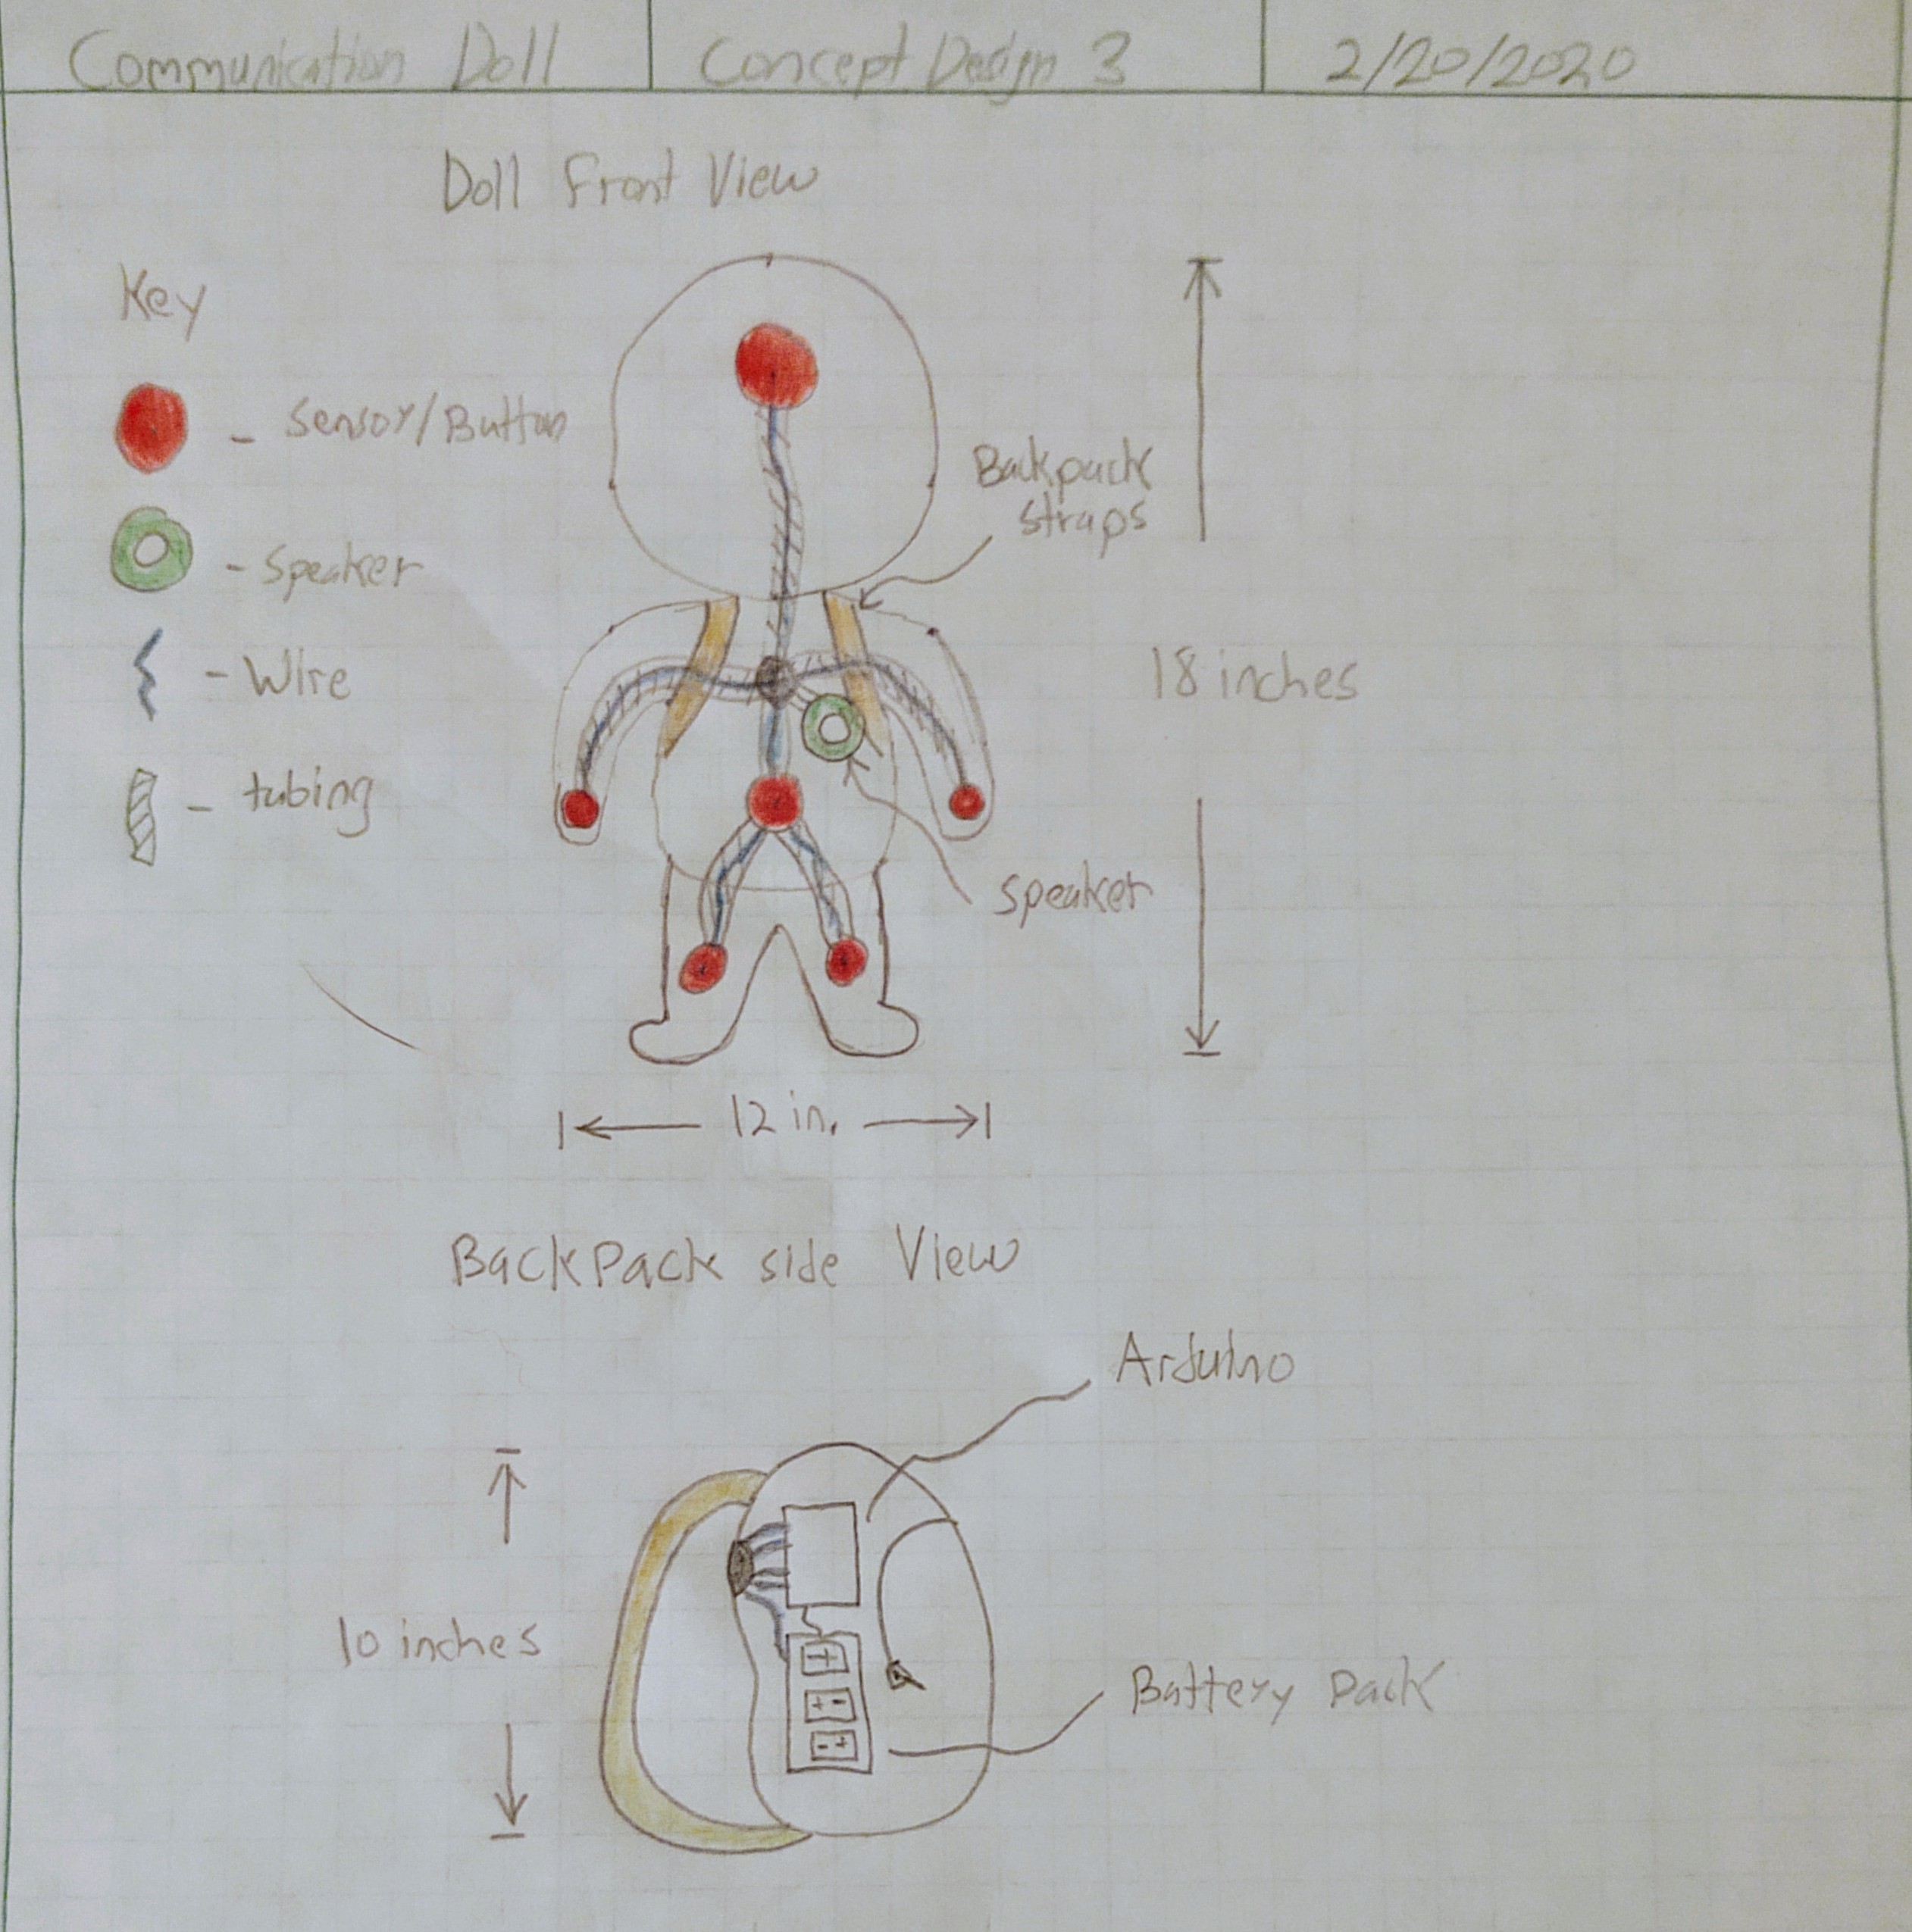 Communication Doll
Concept Design 3
2/20/2020
Doll Front View
Key
Sensor/Button
- Speaker
- Wire
- tubing
Backpack
straps
18 inches
speaker
12 in.
BackPack side View
Arduino
10 inches
Battery pack